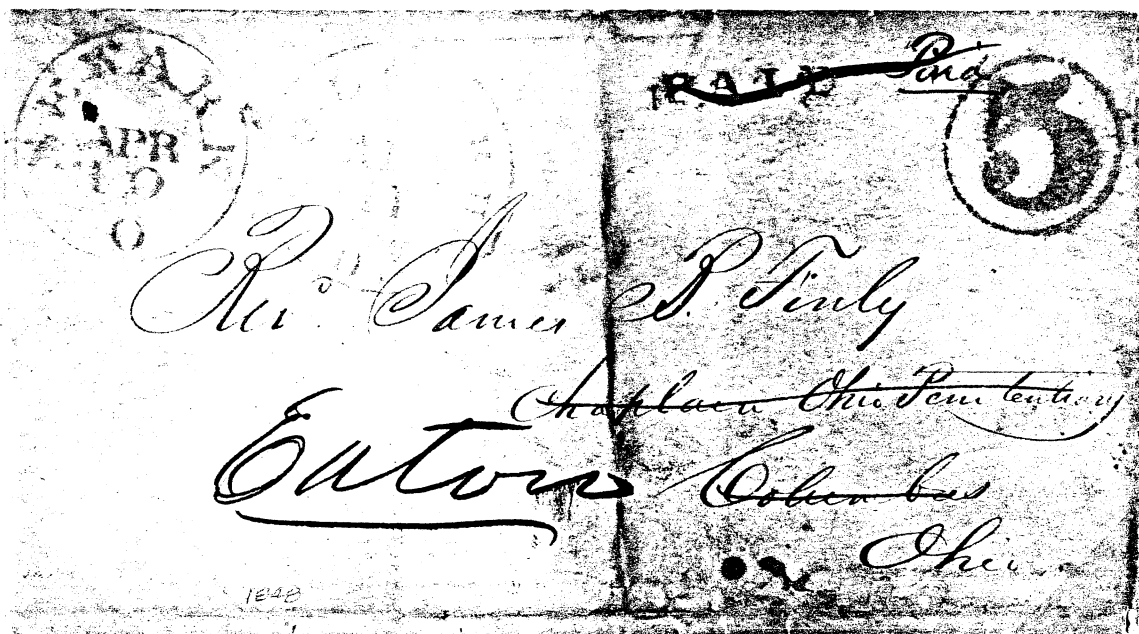 NEWARK O
APR
19
O
PAID Paid
5
Rev.d James B. Finly
Chaplain Ohio Penitentiary
Eaton Columbus
Ohio
1848